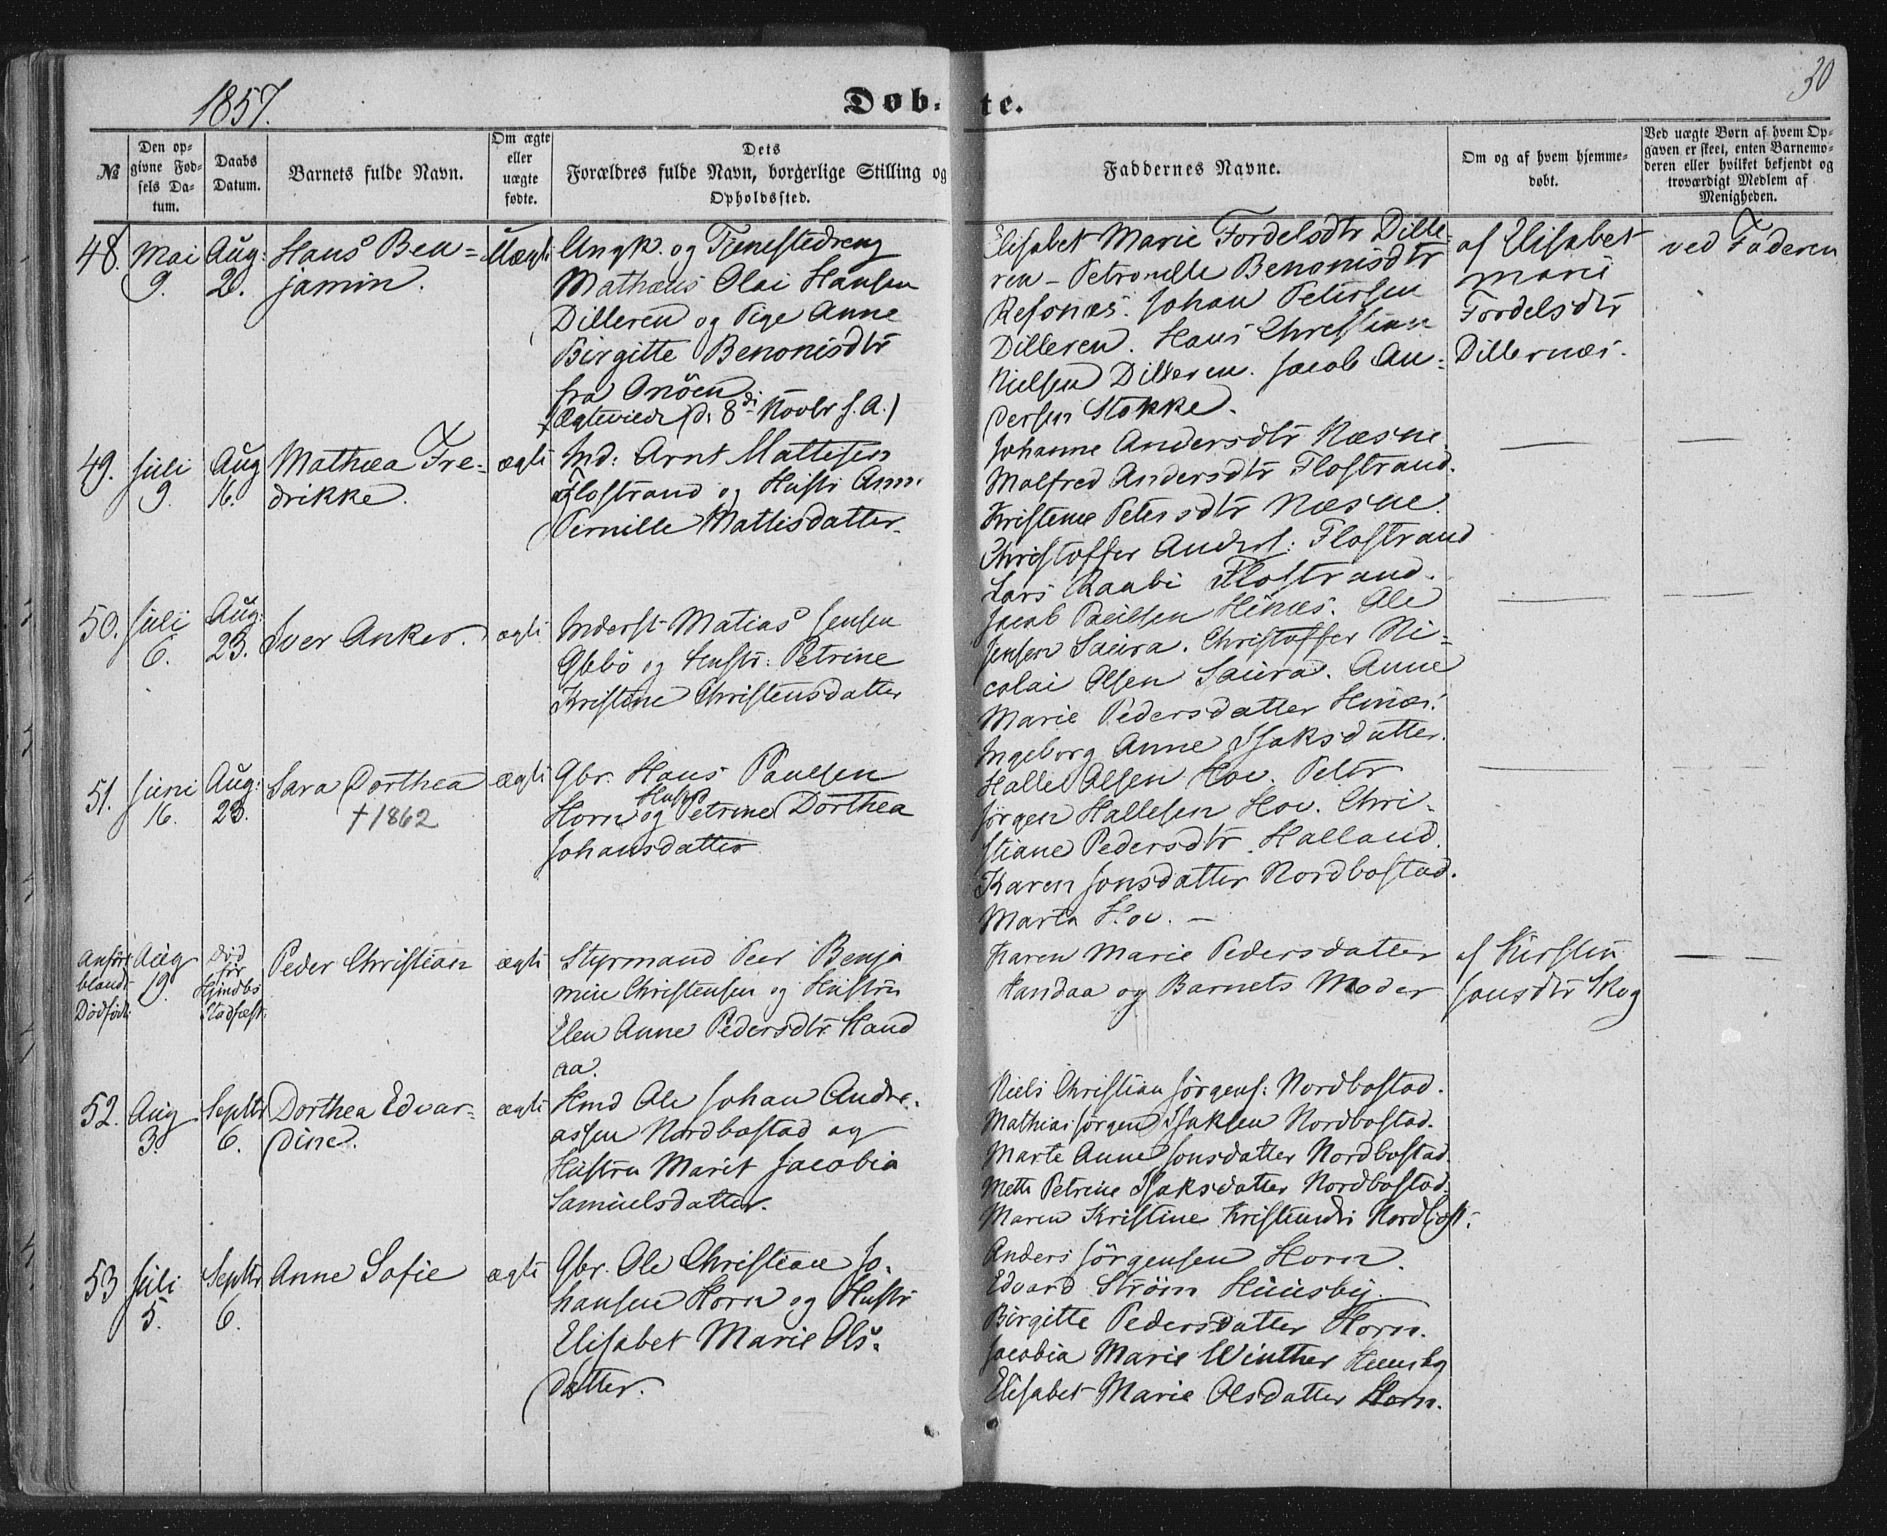 1857.
Døb-te.
30
№
Den op-
givne Fød-
sels Da-
tum.
Daabs
Datum.
Barnets fulde Navn.
Om ægte
eller
uægte
fødte.
Dets
Forældres fulde Navn, borgerlige Stilling og
Opholdssted.
Faddernes Navne.
Om og af hvem hjemme-
døbt.
Ved uægte Børn af hvem Op-
gaven er skeet, enten Barnemo-
deren eller hvilket bekjendt og
troværdigt Medlem af
Menigheden.
48.
Mai
9.
Aug:
2.
Hans Ben-
jamin.
Uægte
Ungk. og Tjenestedreng
Mathæus Olai Hansen
Dilleren og Pige Anne
Birgitte Benonisdtr
fra Onöen
(Ægteviede d. 8de Novbr s. A.)
Elisabet Marie Fordelsdtr Dille-
ren - Petronelle Benonisdtr
Refsnæs. Johan Petersen
Dilleren. Hans Christian
Nielsen Dilleren. Jacob An-
dersen Stokke.
af Elisabet
Marie
Fordelsdtr
Dillernæs.
ved Faderen
49.
Juli
9.
Aug
16.
Mathæa Fre-
drikke.
ægte
Ind: Arnt Mattisen
Flostrand og Hustr Anne
Pernille Mattisdatter.
Johanne Andersdtr Næsne.
Malfred Andersdtr Flostrand.
Kristine Petersdtr Næsne.
Christoffer Anders: Flostrand
Lars Raabi Flostrand.
50.
Juli
6.
Aug:
23.
Iver Anker.
ægte
Inderst Matias Jensen
Ysebö og Hustr: Petrine
Kristine Christensdatter
Jacob Paulsen Hinæs. Ole
Jensen Saura. Christoffer Ni-
colai Olsen Saura. Anne
Marie Pedersdatter Hinæs.
Ingeborg Anne Isaksdatter.
51.
Juni
16.
Aug:
23.
Sara Dorthea
† 1862
ægte
Gbr. Hans Paulsen
Horn og Hustr Petrine Dorthea
Johansdatter
Halle Olsen Hov. Peter
Jörgen Hallesen Hov. Chri-
stiane Pedersdtr. Halland.
Karen Jonsdatter Nordbostad.
Marta Hov. -
Anført
blandt
Dødfødte
Aug
19.
Död
för
Hjmdbs
Stadfæst.
Peder Christian
ægte
Styrmand Peer Benja
min Christensen og Hustru
Elen Anne Pedersdtr Hand
aa.
Karen Marie Pedersdatter
Handaa og Barnets Moder
af Kirsten
Jonsdtr Skog
52.
Aug
3.
Septbr
6.
Dorthea Edvar-
dine.
ægte
Hmd Ole Johan Andre-
assen Nordbostad og
Hustru Marit Jacobia
Samuelsdatter.
Niels Christian Jörgens: Nordbostad.
Mathias Jörgen Isaksen Nordbostad.
Marte Anne Jonsdatter Nordbostad
Mette Petrine Isaksdatter Nordbostad.
Maren Kristine Kristensdtr Nordbost.
53
Juli
5.
Septbr
6.
Anne Sofie
ægte
Gbr. Ole Christian Jo-
hansen Horn og Hustr
Elisabet Marie Ols-
datter.
Anders Jörgensen Horn.
Edvard Ström Huusby.
Birgitte Pedersdatter Horn.
Jacobia Marie Winther Huusby
Elisabet Marie Olsdatter Horn.